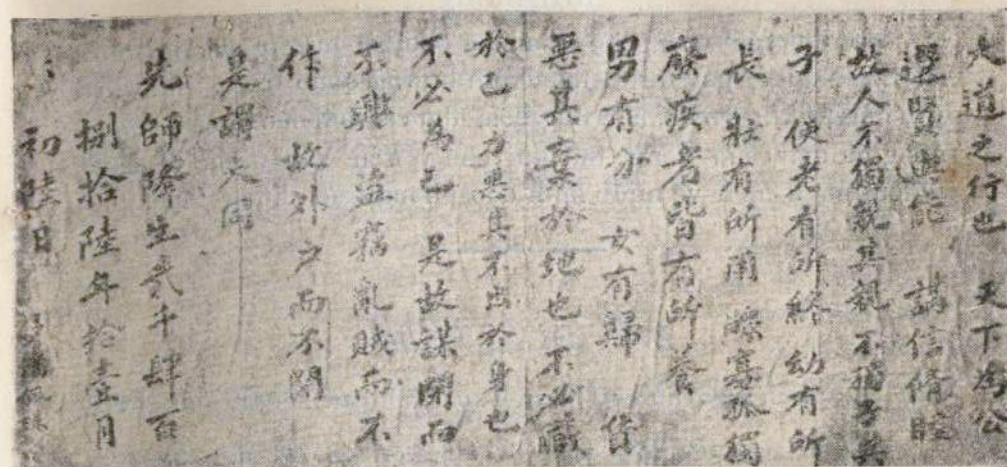 大道之行也 天下為公
選賢與能 講信脩睦
故人不獨親其親不獨子其
子 使老有所終 幼有所
長 壯有所用 鰥寡孤獨
廢疾者皆有所養
男有分 女有歸 貨
惡其棄於地也 不必藏
於己 力惡其不出於身也
不必為己 是故謀閉而
不興 盜竊亂賊而不
作 故外戶而不閉
是謂大同
先師降生弍千肆百
捌拾陸年拾壹月
初陸日